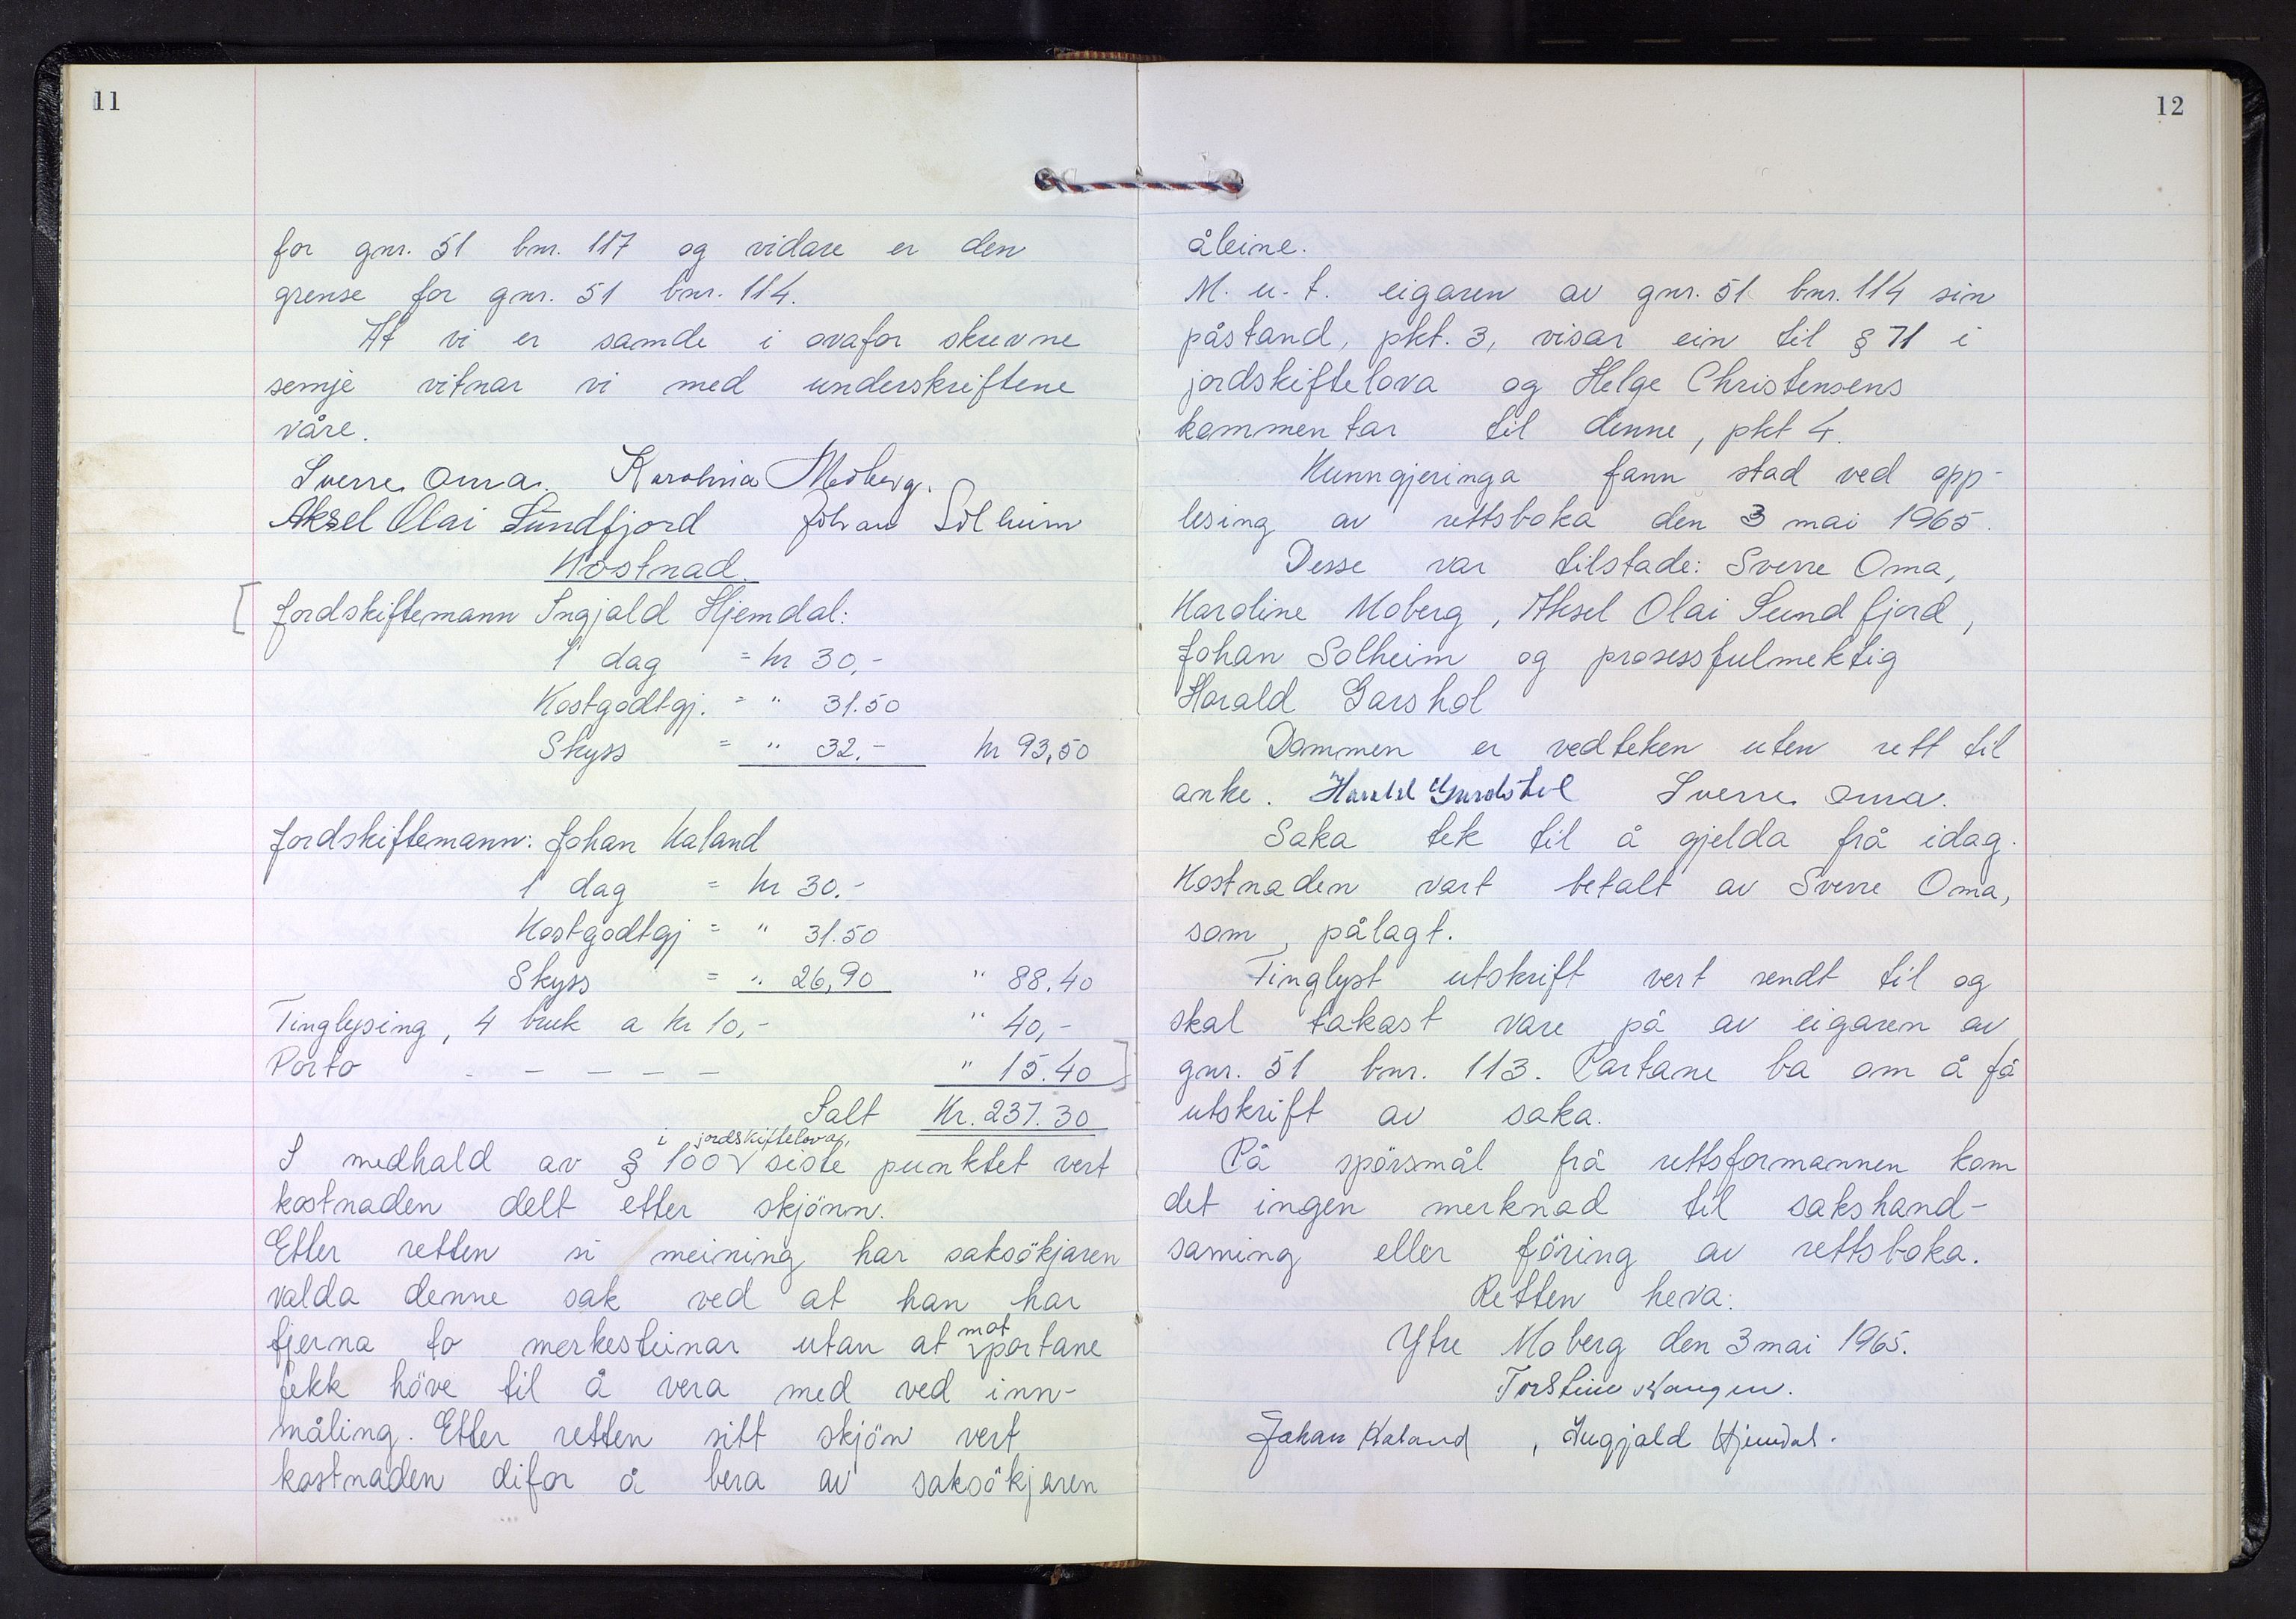 11
for gnr. 51 bnr. 117 og vidare er den
grense for gnr. 51 bnr. 114.
At vi er samde i ovafor skrevne
semje vitnar vi med underskriftene
våre.
Sverre Oma. Karolina Moberg.
Aksel Olai Sundfjord Johan Solheim
Kostnad.
[Jordskiftemann Ingjald Hjemdal:
1 dag = kr 30,-
Kostgodtgj. = " 31.50
Skyss = " 32.- kr 93,50
Jordskiftemann: Johan Kaland
1 dag = kr 30.-
Kostgodtgj = " 31.50
Skyss = " 26,90 " 88.40
Tinglysing, 4 bruk a kr 10,- " 40,-
Porto - - - - - " 15.40]
Salt Kr. 237.30
i jordskiftelova,
I medhald av § 100 √ siste punktet vert
kostnaden delt etter skjönn.
Etter retten si meining har saksökjaren
valda denne sak ved at han har
fjerna to merkesteinar utan at √ partane
mot
fekk höve til å vera med ved inn-
måling. Etter retten sitt skjön vert
kostnaden difor å bera av saksökjaren
12
åleine.
M. u. t. eigaren av gnr. 51 bnr. 114 sin
påstand, pkt. 3, visar ein til § 71 i
jordskiftelova og Helge Christensens
kommentar til denne, pkt 4.
Kunngjeringa fann stad ved opp-
lesing av rettsboka den 3 mai 1965.
Desse var tilstade: Sverre Oma,
Karoline Moberg, Aksel Olai Sundfjord,
Johan Solheim og prosessfulmektig
Harald Garshol
Dommen er vedteken uten rett til
anke. Harald Sverre Oma.
Saka tek til å gjelda frå idag.
Kostnaden vart betalt av Sverre Oma,
som pålagt.
Tinglyst utskrift vert sendt til og
skal takast vare på av eigaren av
gnr. 51 bnr. 113. Partane ba om å få
utskrift av saka.
På spörsmål frå rettsformannen kom
det ingen merknad til sakshand-
saming eller föring av rettsboka.
Retten heva.
Ytre Moberg den 3 mai 1965.
Torstein Haugen.
Johan Kaland, Ingjald Hjemdal.